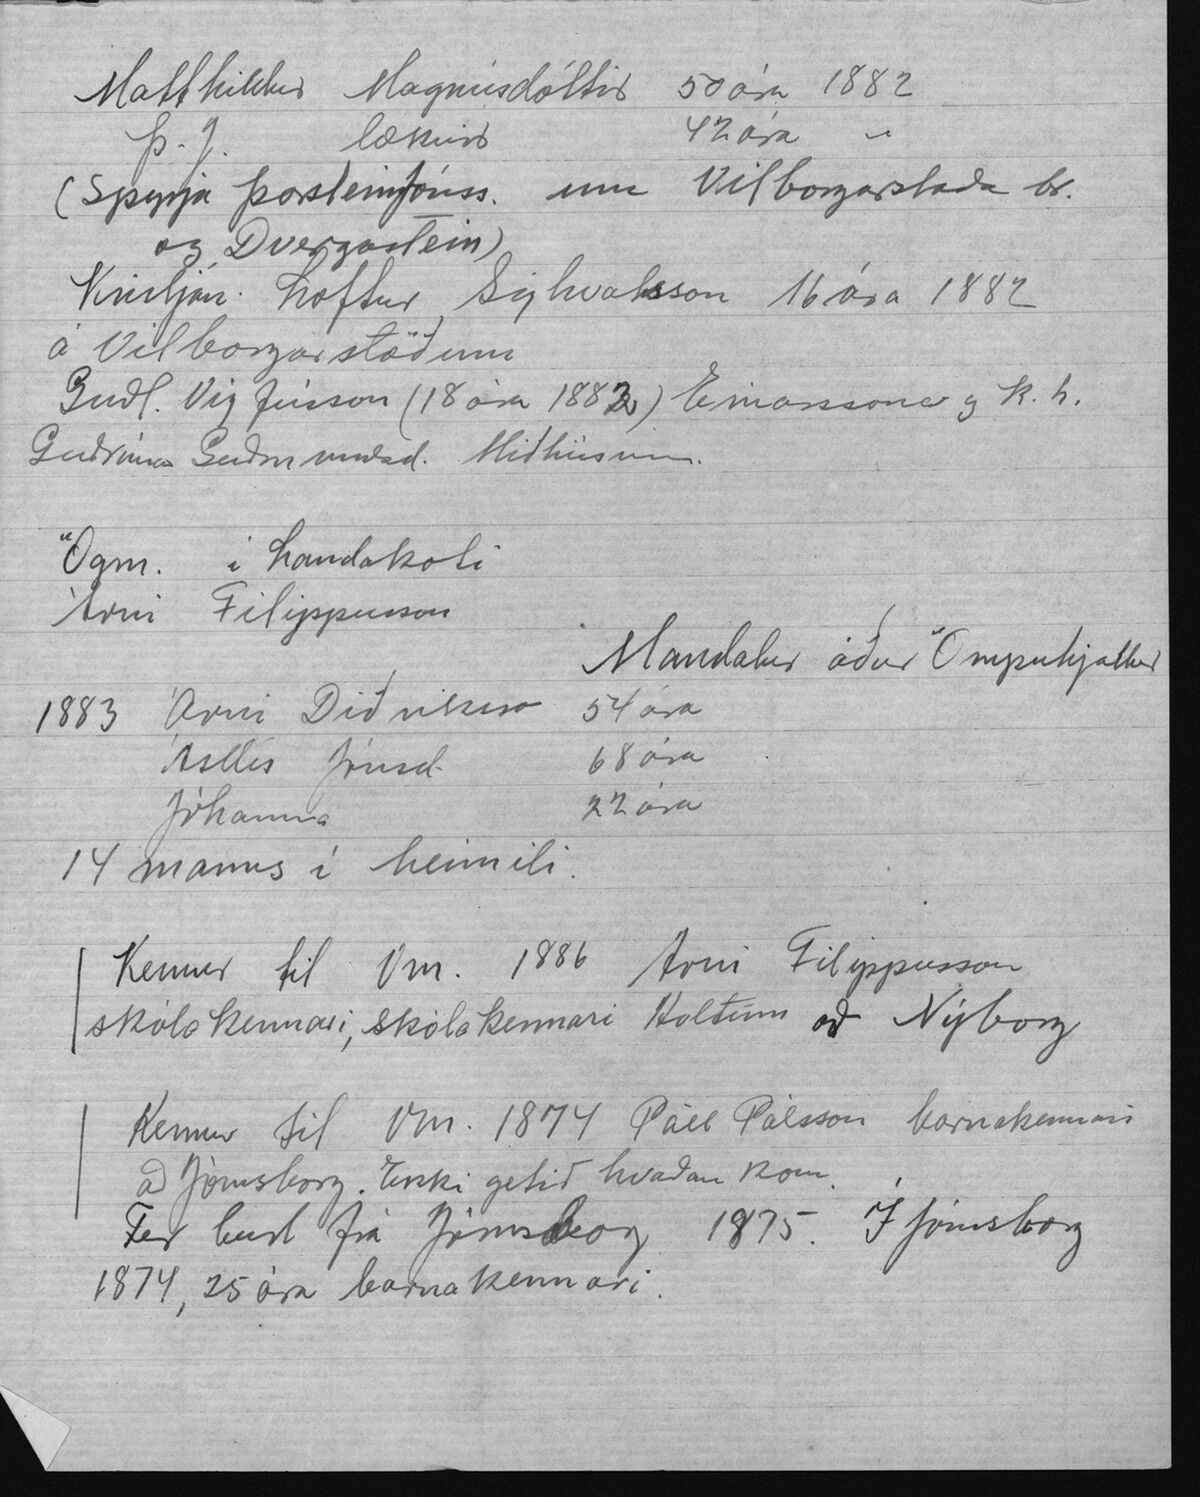 Matthildur Magnúsdóttir 50 ára 1882
Þ. J. læknir 42 ára "
(Spyrja Þorstein Jónss. um Vilborgarstaða br.
og Dvergastein)
Kristján Loftur Sighvatsson 16 ára 1882
á Vilborgarstöðum
Guðl. Vigfússon (18 ára 1882) Einarssonar og k. h.
Guðrúnar Guðmundsd. Miðhúsum.
Ögm. í Landakoti
Árni Filippusson
Mandalur áður Ömpuhjallur
1883 Árni Diðriksson 54 ára
Ásdís Jónsd. 68 ára
Jóhanna 22 ára
14 manns í heimili.
Kemur til Vm. 1886 Árni Filippusson
skólakennari, skólakennari Holtinu að Nýborg
Kemur til Vm. 1874 Páll Pálsson barnakennari
að Jómsborg. Ekki getið hvaðan kom.
Fer burt frá Jómsborg 1875. Í Jómsborg
1874, 25 ára barnakennari.